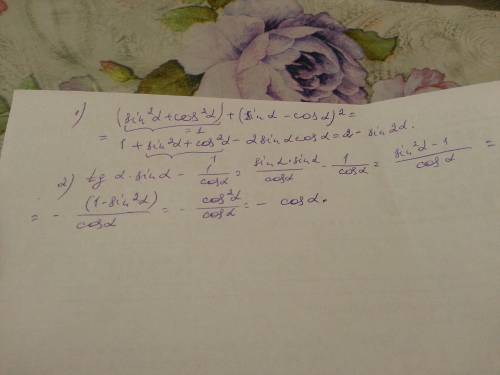 1) (sin²α+cos²α)+(sinα-cosα)²=
=1
= 1+sin²α+cos²α-2sinαcosα=2-sin2α.
2) tg α·sinα - 1/cosα = sinα·sinα/cosα - 1/cosα = sin²α-1/cosα =
= - (1-sin²α)/cosα = - cos²α/cosα = - cosα.